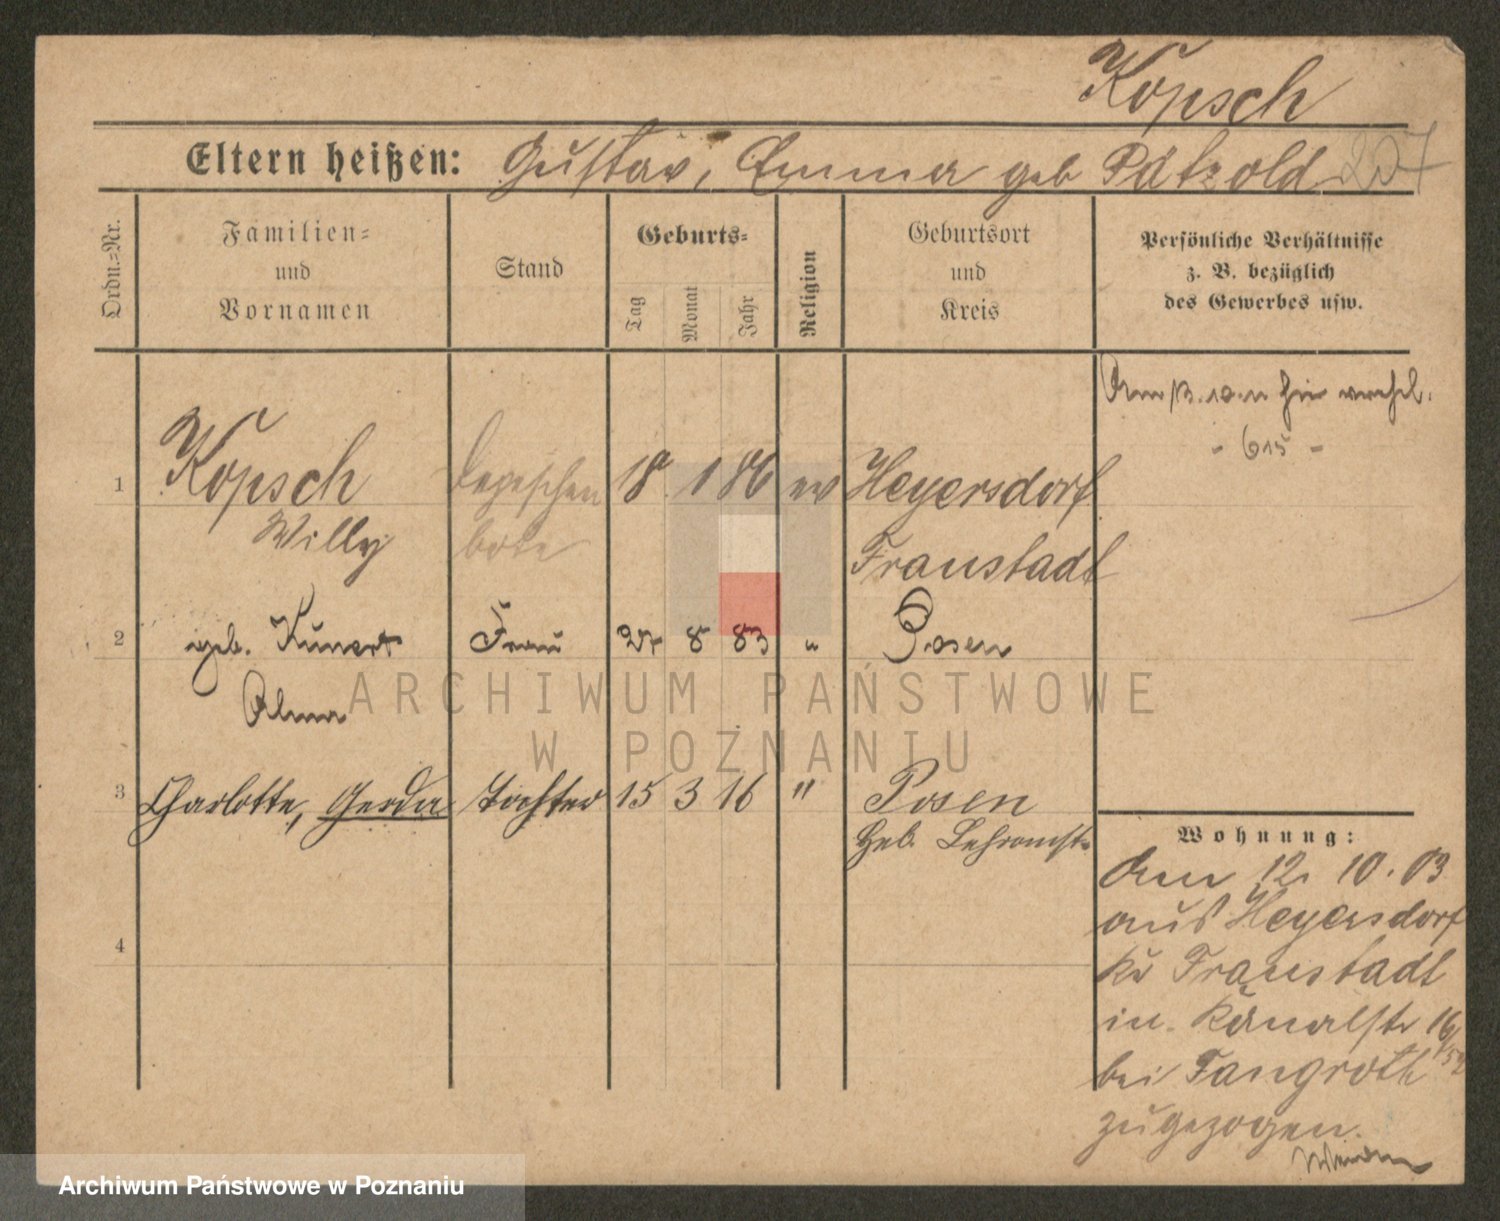 Kopsch
Eltern heißen: Gustav, Emma geb Pätzold 207
Ordn.=Nr.
Familien=
und
Vornamen
Stand
Geburts=
Tag
Monat
Jahr
Religion
Geburtsort
und
Kreis
Persönliche Verhältnisse
z. B. bezüglich
des Gewerbes usw.
- 615 -
1 Kopsch Depeschen 18 1 86 ev Heyersdorf
Willy bote Fraustadt
2 geb. Kunert Frau 27 8 83 " Posen
Alma
3 Charlotte, Gerda Tochter 15 3 16 " Posen
Geb.
4
Wohnung:
den 12. 10. 03
aus Heyersdorf
Kr Fraustadt
in Kanalstr 16
bei Tangroth
zugezogen.
ARCHIWUM PAŃSTWOWE
W POZNANIU
Archiwum Państwowe w Poznaniu